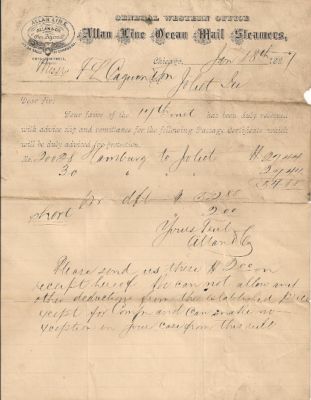 ALLAN LINE
GENERAL WESTERN OFFICE
Allan Line Ocean Mail Steamers,
Chicago, Jan 18th 188
Joliet Ill
Dear Sir:
Your favor of the 17th inst has been duly received
with advice slip and remittance for the following Passage Certificate which
will be duly advised for protection.
No. 20028 Hamburg to Joliet 27.44
30 " " " 27.44
54.88
By dft 52.88
short 2.00
Yours Truly
Allan & Co
Please send us these $2.00 on
receipt hereof for can not allow any
other deductions from the established
except for Comn and can make no
exception in your case from this rule